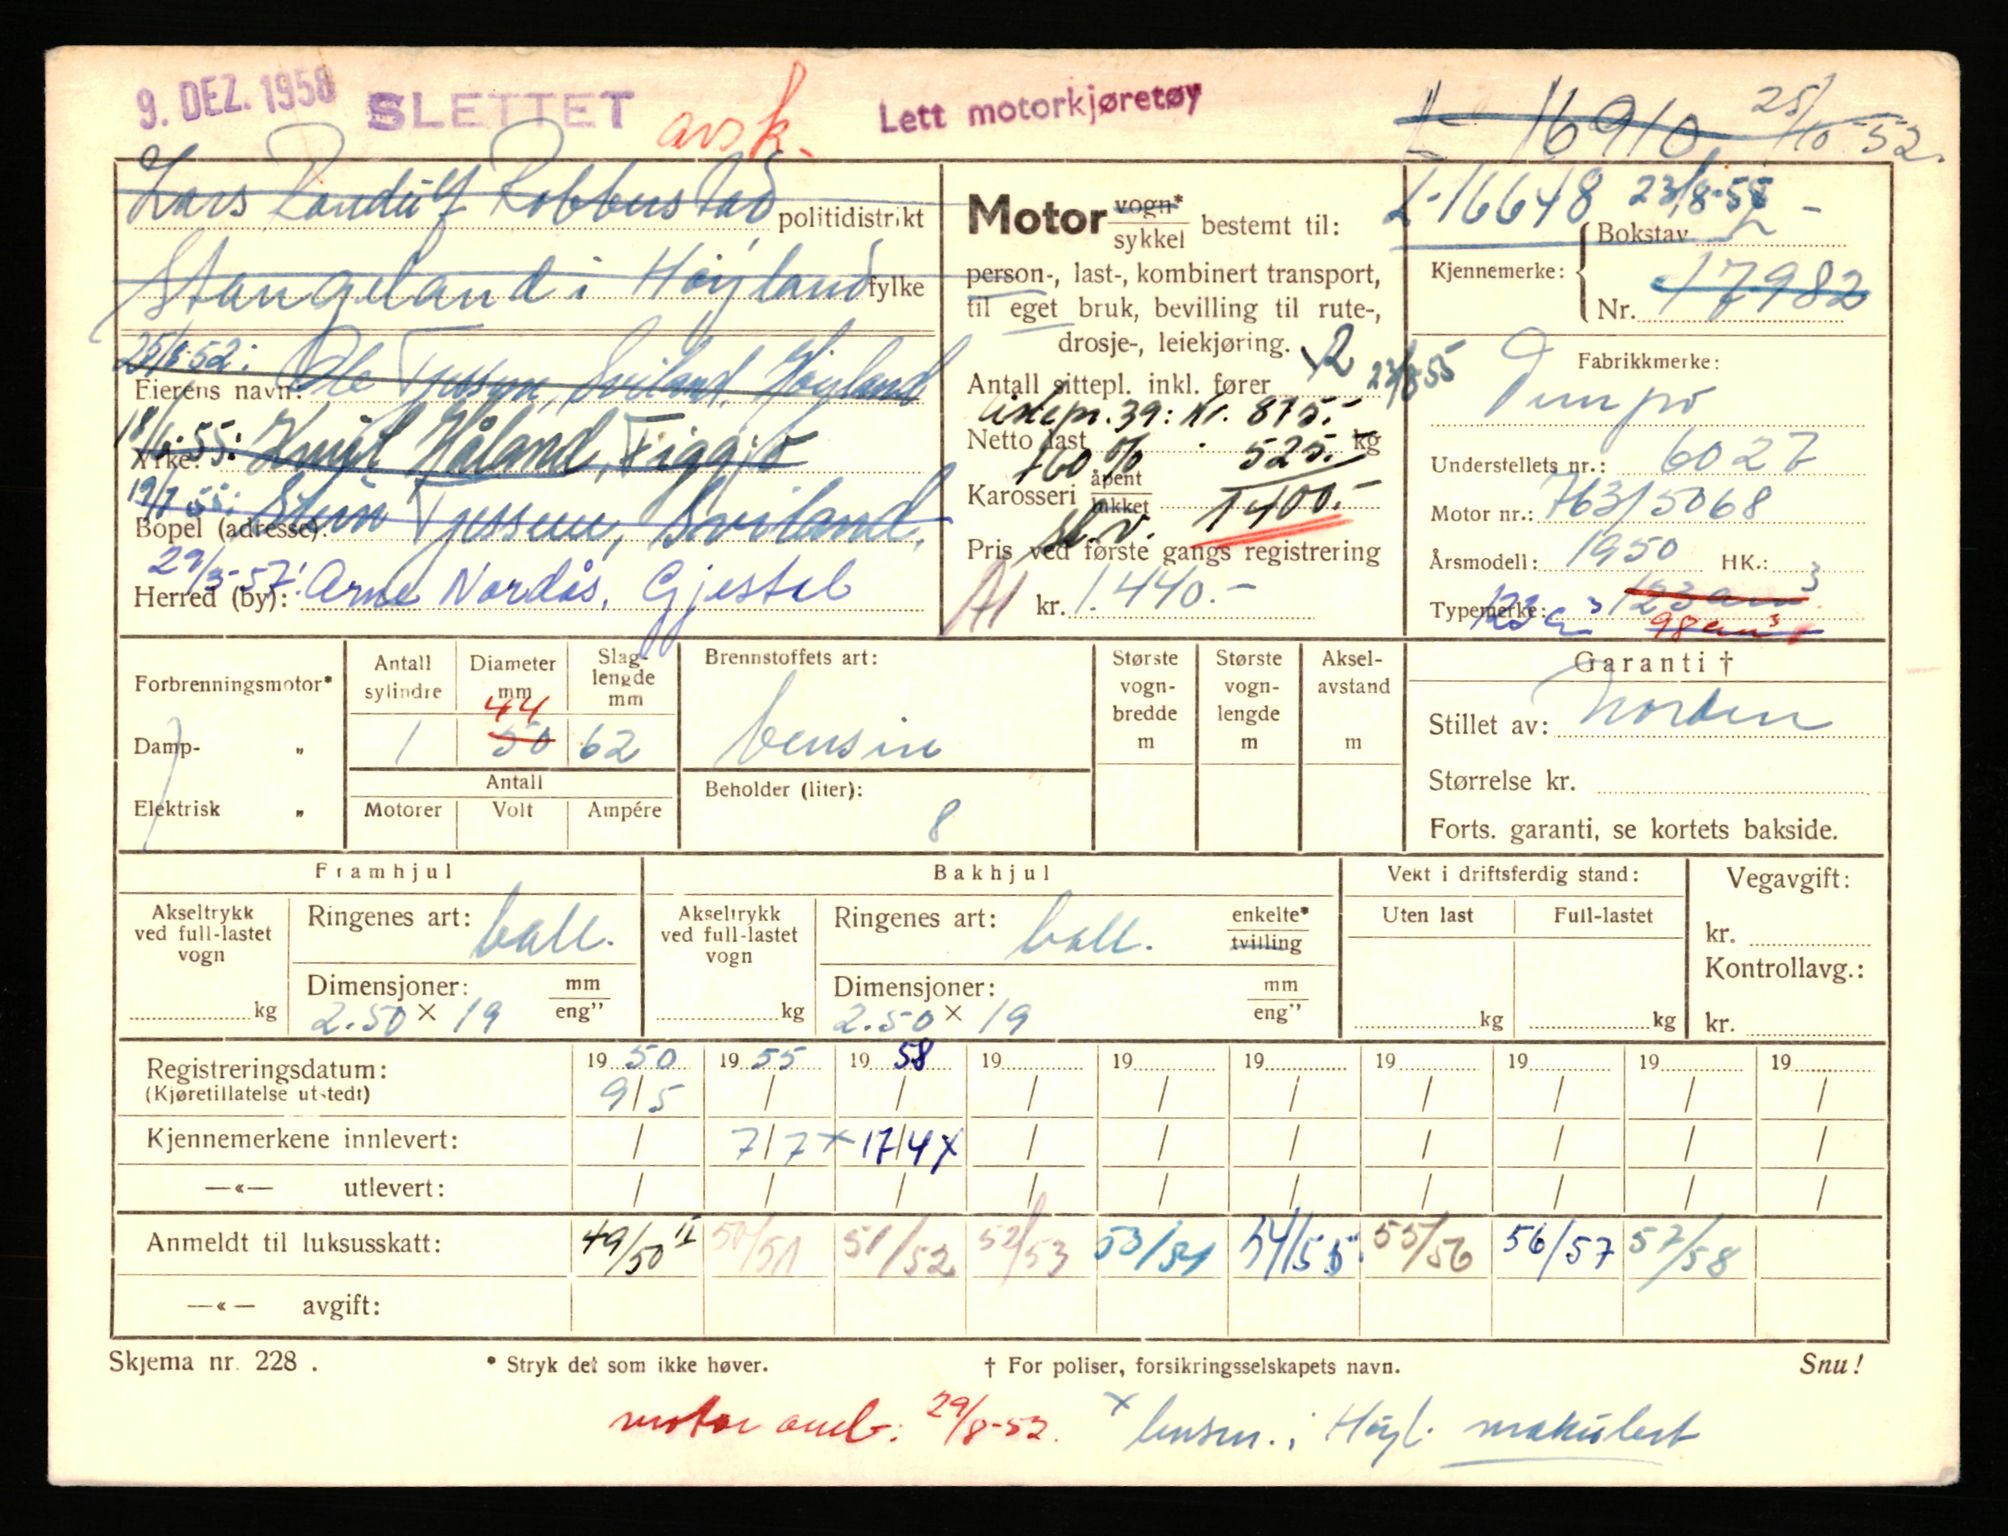 9. DEZ. 1958 SLETTET avsk. Lett motorkjøretøy L- 16910 25/10 52.
Lars Randulf Robberstad politidistrikt
Stangeland i Høyland fylke
25/8-52: Ole Tjessem, Sviland, Høyland
Eierens navn:
18/6-55: Håland, Figgjo
Yrke:
19/7 55: Stein Tjessem, Sviland.
Bopel (adresse):
29/3-57: Arne Nordås, Gjestal
Herred (by):
Motor vogn*/sykkel bestemt til:
person-, last-, kombinert transport,
til eget bruk, bevilling til rute-,
drosje-, leiekjøring.
Antall sittepl. inkl. fører 2 23/8-55
39: Kr. 875.-
Netto last kg
+60% 525.-
Karosseri åpent/lukket 1400.-
Pris ved første gangs registrering
A1 kr. 1.440.-
L-16648 23/8-55
Kjennemerke: Bokstav L -
Nr. 17982
Fabrikkmerke:
Tempo
Understellets nr.: 6027
Motor nr.: 763/5068
Årsmodell: 1950 HK.:
Typemerke: 123 cm³ 123 cm³
98 cm³
Forbrenningsmotor*
Damp- „
Elektrisk „
Antall sylindre 1
Diameter mm 44 50
Slaglengde mm 62
Antall
Motorer Volt Ampére
Brennstoffets art:
bensin
Beholder (liter):
8
Største vognbredde m
Største vognlengde m
Akselavstand m
Garanti †
Stillet av: Norden
Størrelse kr.
Forts. garanti, se kortets bakside.
Framhjul
Akseltrykk ved full-lastet vogn kg
Ringenes art: ball.
Dimensjoner: mm/eng”
2.50 × 19
Bakhjul
Akseltrykk ved full-lastet vogn kg
Ringenes art: ball. enkelte*/tvilling
Dimensjoner: mm/eng”
2.50 × 19
Vekt i driftsferdig stand:
Uten last Full-lastet
kg kg
Vegavgift:
kr.
Kontrollavg.:
kr.
Registreringsdatum: 19 50 19 55 19 58 19 19 19 19 19 19 19
(Kjøretillatelse utstedt) 9/5 / / / / / / / / /
Kjennemerkene innlevert: / 7/7 × 17/4 × / / / / / / /
—«— utlevert: / / / / / / / / / /
Anmeldt til luksusskatt: 49/50 II 50/51 51/52 52/53 53/54 54/55 55/56 56/57 57/58
—«— avgift:
Skjema nr. 228 . * Stryk det som ikke høver. † For poliser, forsikringsselskapets navn. Snu!
motor omb: 29/8-52. × i Høyl. makulert